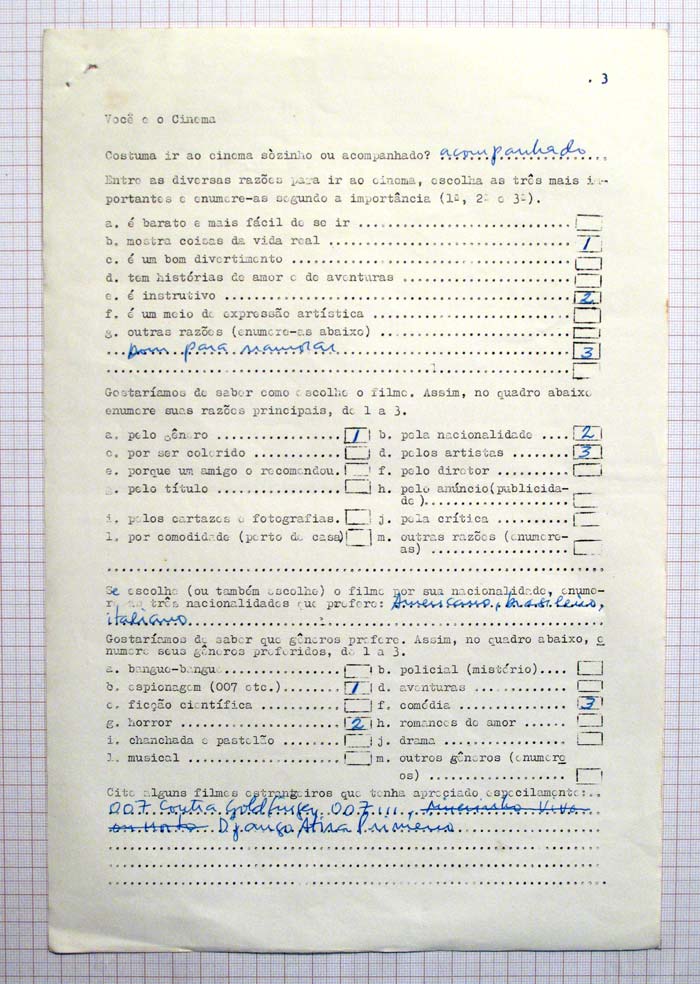 . 3
Você e o Cinema
Costuma ir ao cinema sòzinho ou acompanhado? acompanhado
Entre as diversas razões para ir ao cinema, escolha as três mais im-
portantes e enumere-as segundo a importância (1ª, 2ª e 3ª).
a. é barato e mais fácil de se ir
b. mostra coisas da vida real 1
c. é um bom divertimento
d. tem histórias de amor e de aventuras
e. é instrutivo 2
f. é um meio de expressão artística
g. outras razões (enumere-as abaixo)
bom para namorar 3
Gostaríamos de saber como escolhe o filme. Assim, no quadro abaixo
enumere suas razões principais, de 1 a 3.
a. pelo gênero 1 b. pela nacionalidade 2
c. por ser colorido d. pelos artistas 3
e. porque um amigo o recomendou. f. pelo diretor
g. pelo título h. pelo anúncio(publicida-
de)
i. pelos cartazes e fotografias. j. pela crítica
l. por comodidade (perto de casa) m. outras razões (enumere-
as)
Se escolhe (ou também escolhe) o filme por sua nacionalidade, enume-
re as três nacionalidades que prefere: Americano, brasileiro,
italiano
Gostaríamos de saber que gêneros prefere. Assim, no quadro abaixo, e
numere seus gêneros preferidos, de 1 a 3.
a. bangue-bangue b. policial (mistério)
b. espionagem (007 etc.) 1 d. aventuras
e. ficção científica f. comédia 3
g. horror 2 h. romances de amor
i. chanchada e pastelão j. drama
l. musical m. outros gêneros (enumere
os)
Cite alguns filmes estrangeiros que tenha apreciado especilamente:
007 Contra Goldfinger, 007 ..., Viva
ou Morto Django Atira Primeiro